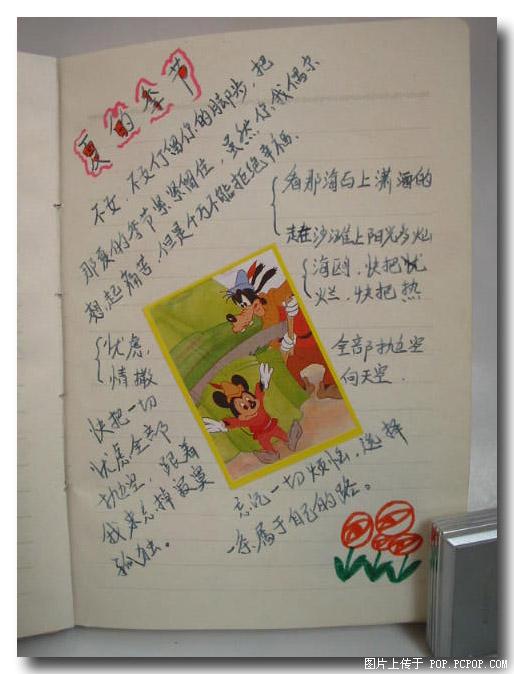 夏的季节
不女，不女停留你的脚步，把
那夏的季节紧紧锢住，虽然你我偶尔
想起痛苦，但是千万不能拒绝幸福。
看那海与上潇洒的
走在沙滩上阳光与灿
海鸥，快把忧
烂，快把热
忧虑，
情撒
全部抛空
向天空．
快把一切
忧虑全部
抛空，跟着
我来忘掉寂寞
孤独。
忘记一切烦恼，选择
一条属于自己的路。
图片上传于 POP.PCPOP.COM